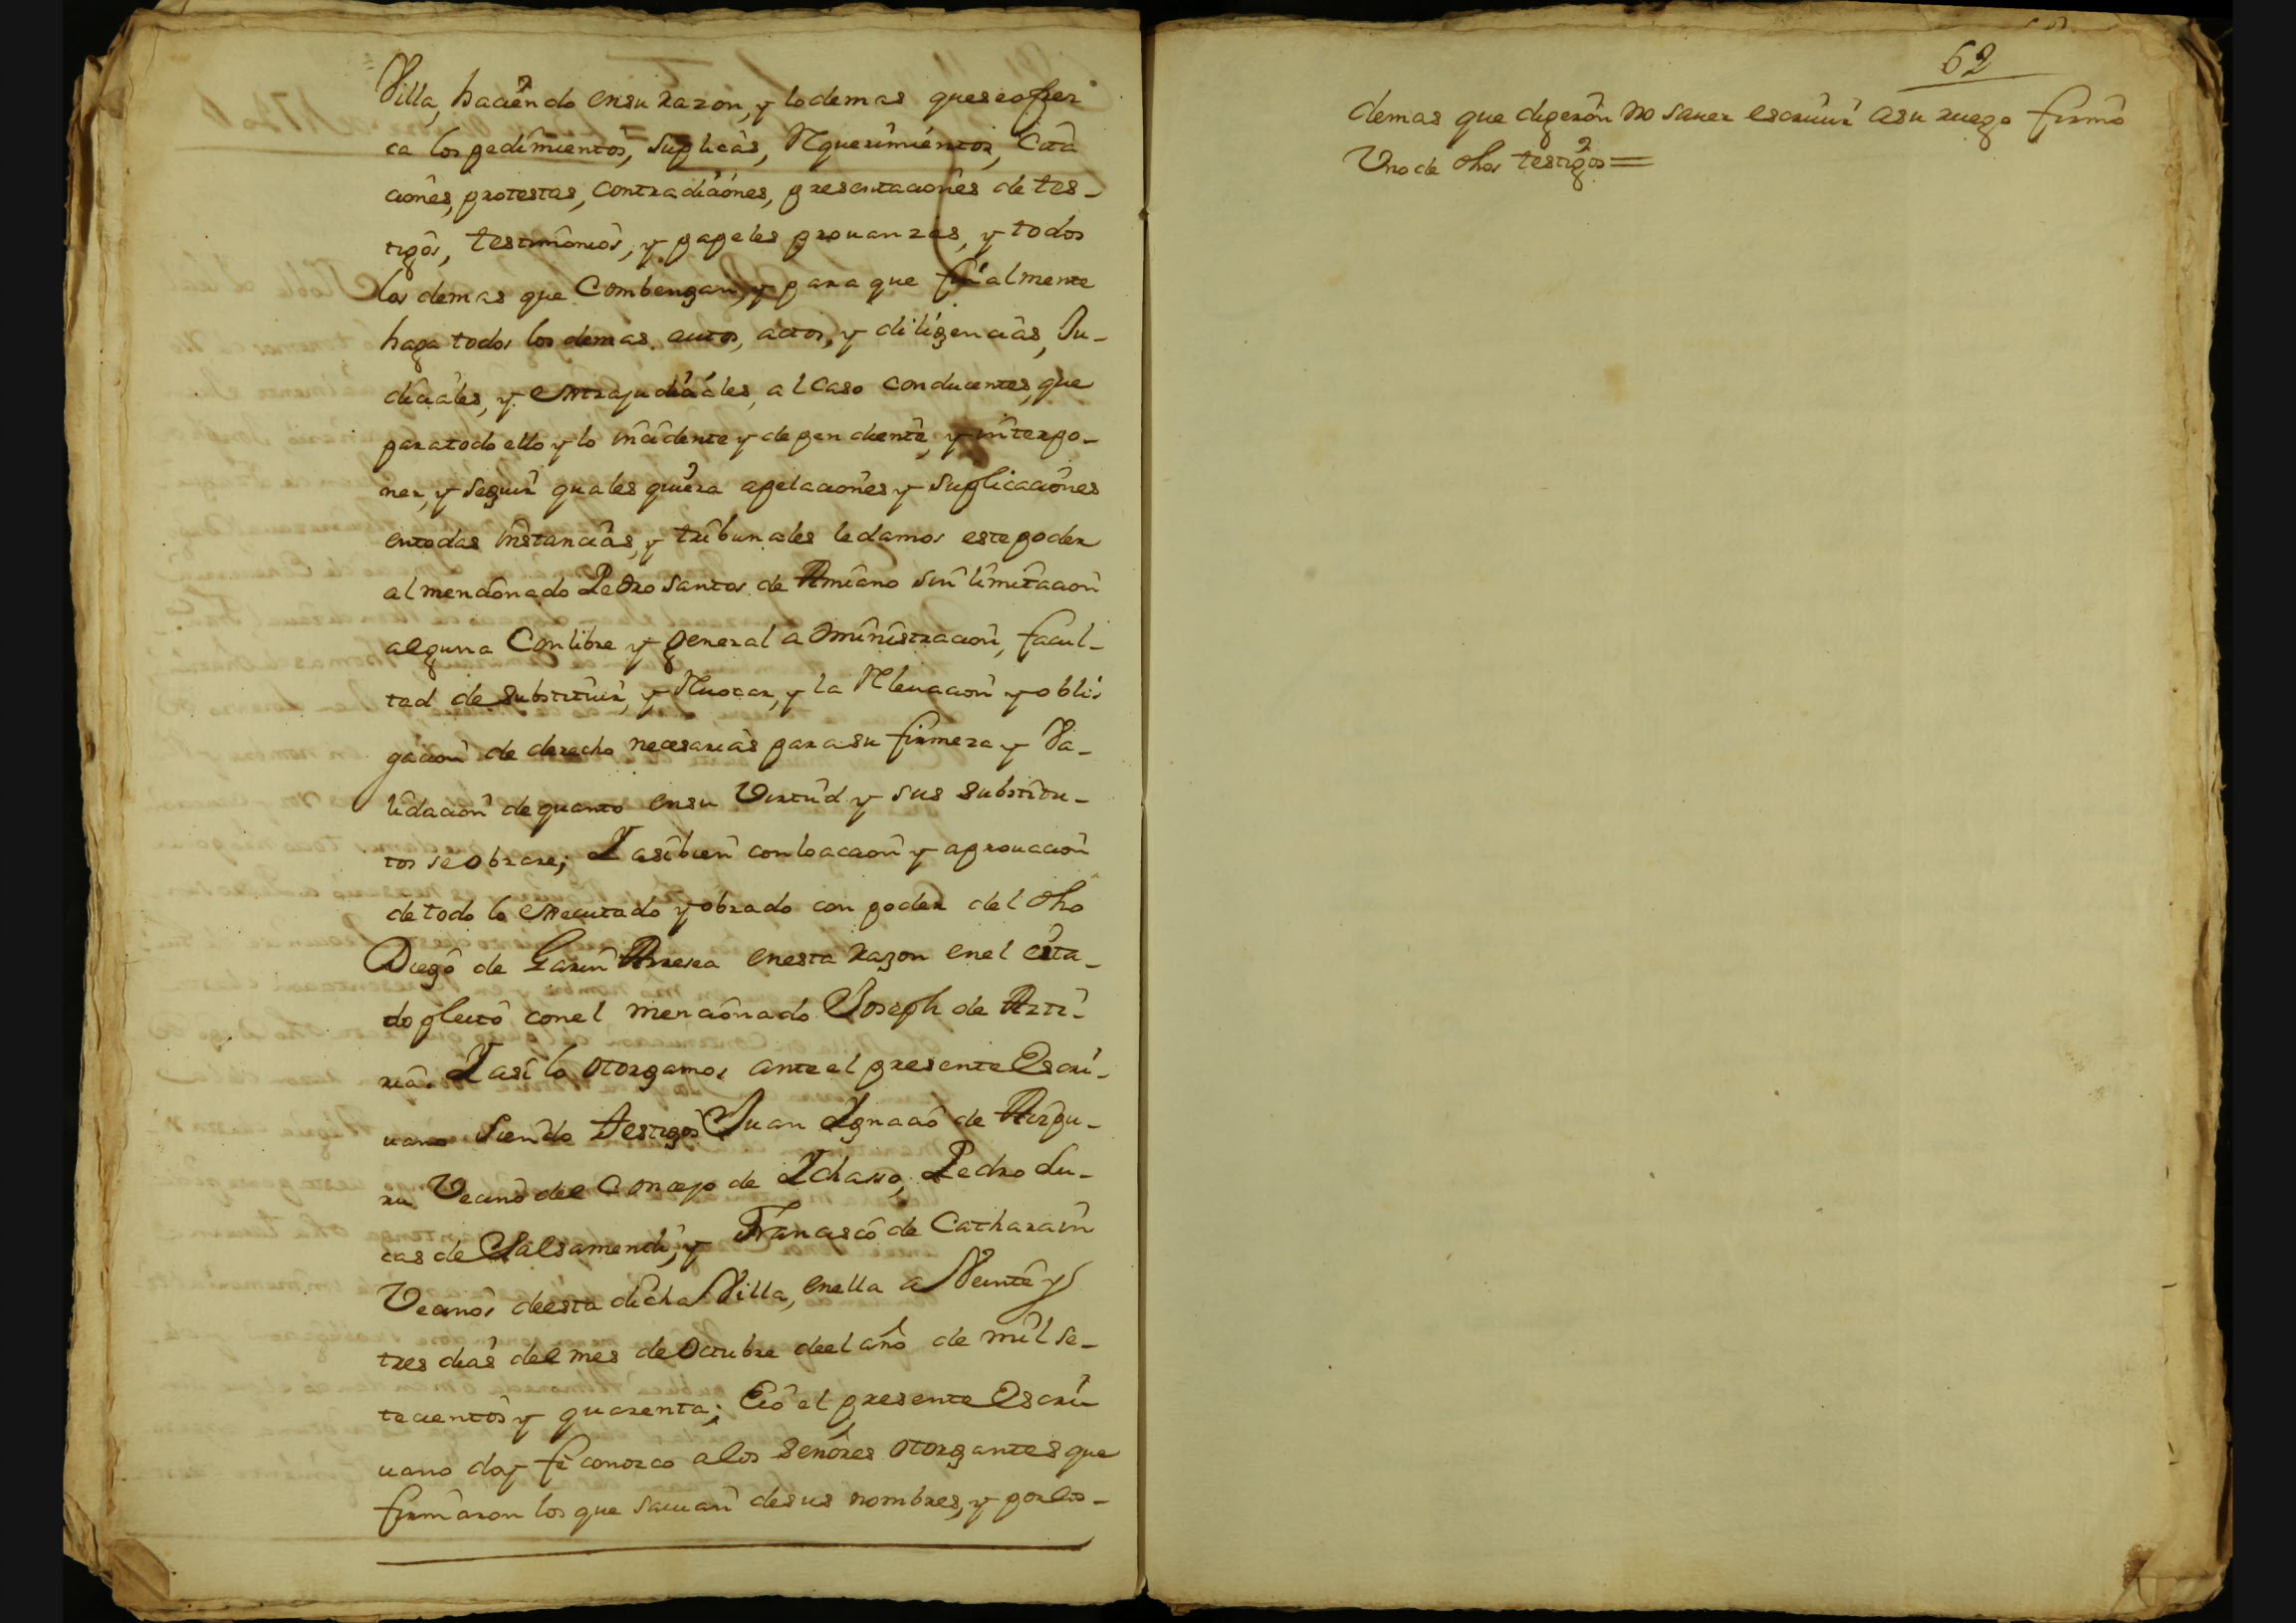 Villa, haciendo ensu razon, y lodemas queseofrez
ca los pedimientos, suplicas, Requerimientos, Cita
ciones, protestas, contradiciones, presentaciones de tes-
tigos, testimonios, y papeles prouanzas, y todos
los demas que Combengan, y para que finalmente
haga todos los demas autos, actos, y diligencias, Ju-
diciales, y extrajudiciales, al caso conducentes, que
paratodo ello y lo incidente y dependiente, y interpo-
ner, y seguir quales quiera apelaciones y suplicaciones
entodas instancias, y tribunales ledamos este poder
al mencionado Pedro santos de Amiano sin limitacion
alguna Con libre y general administracion, facul-
tad de substituir, y Reuocar, y la Releuacion y obli
gacion de derecho necesarias para su firmeza y Va-
lidacion de quanto ensu Virtud y sus substitu-
tos se obrare; Y asibien con loacion y aprouacion
de todo lo executado y obrado con poder del dho
Diego de Garin Arresea enesta razon enel cita-
do pleito conel mencionado Joseph de Arti-
ria. Y asi lo otorgamos ante el presente Escri-
uano siendo testigos Juan Ygnacio de Aizpu-
ru Vecino del Concejo de Ychasso, Pedro Lu-
cas de Salsamendi, y Francisco de Catharain
Vecinos deesta dicha Villa, enella a Veinte y
tres dias del mes de Octubre deel año de mil se-
tecientos y quarenta; Eio el presente Escri-
uano doy fe conozco alos señores otorgantes que
firmaron los que sauian desus nombres, y porlos-
62
demas que digeron no sauer escriuir asu ruego firmo
Uno de dhos testigos =